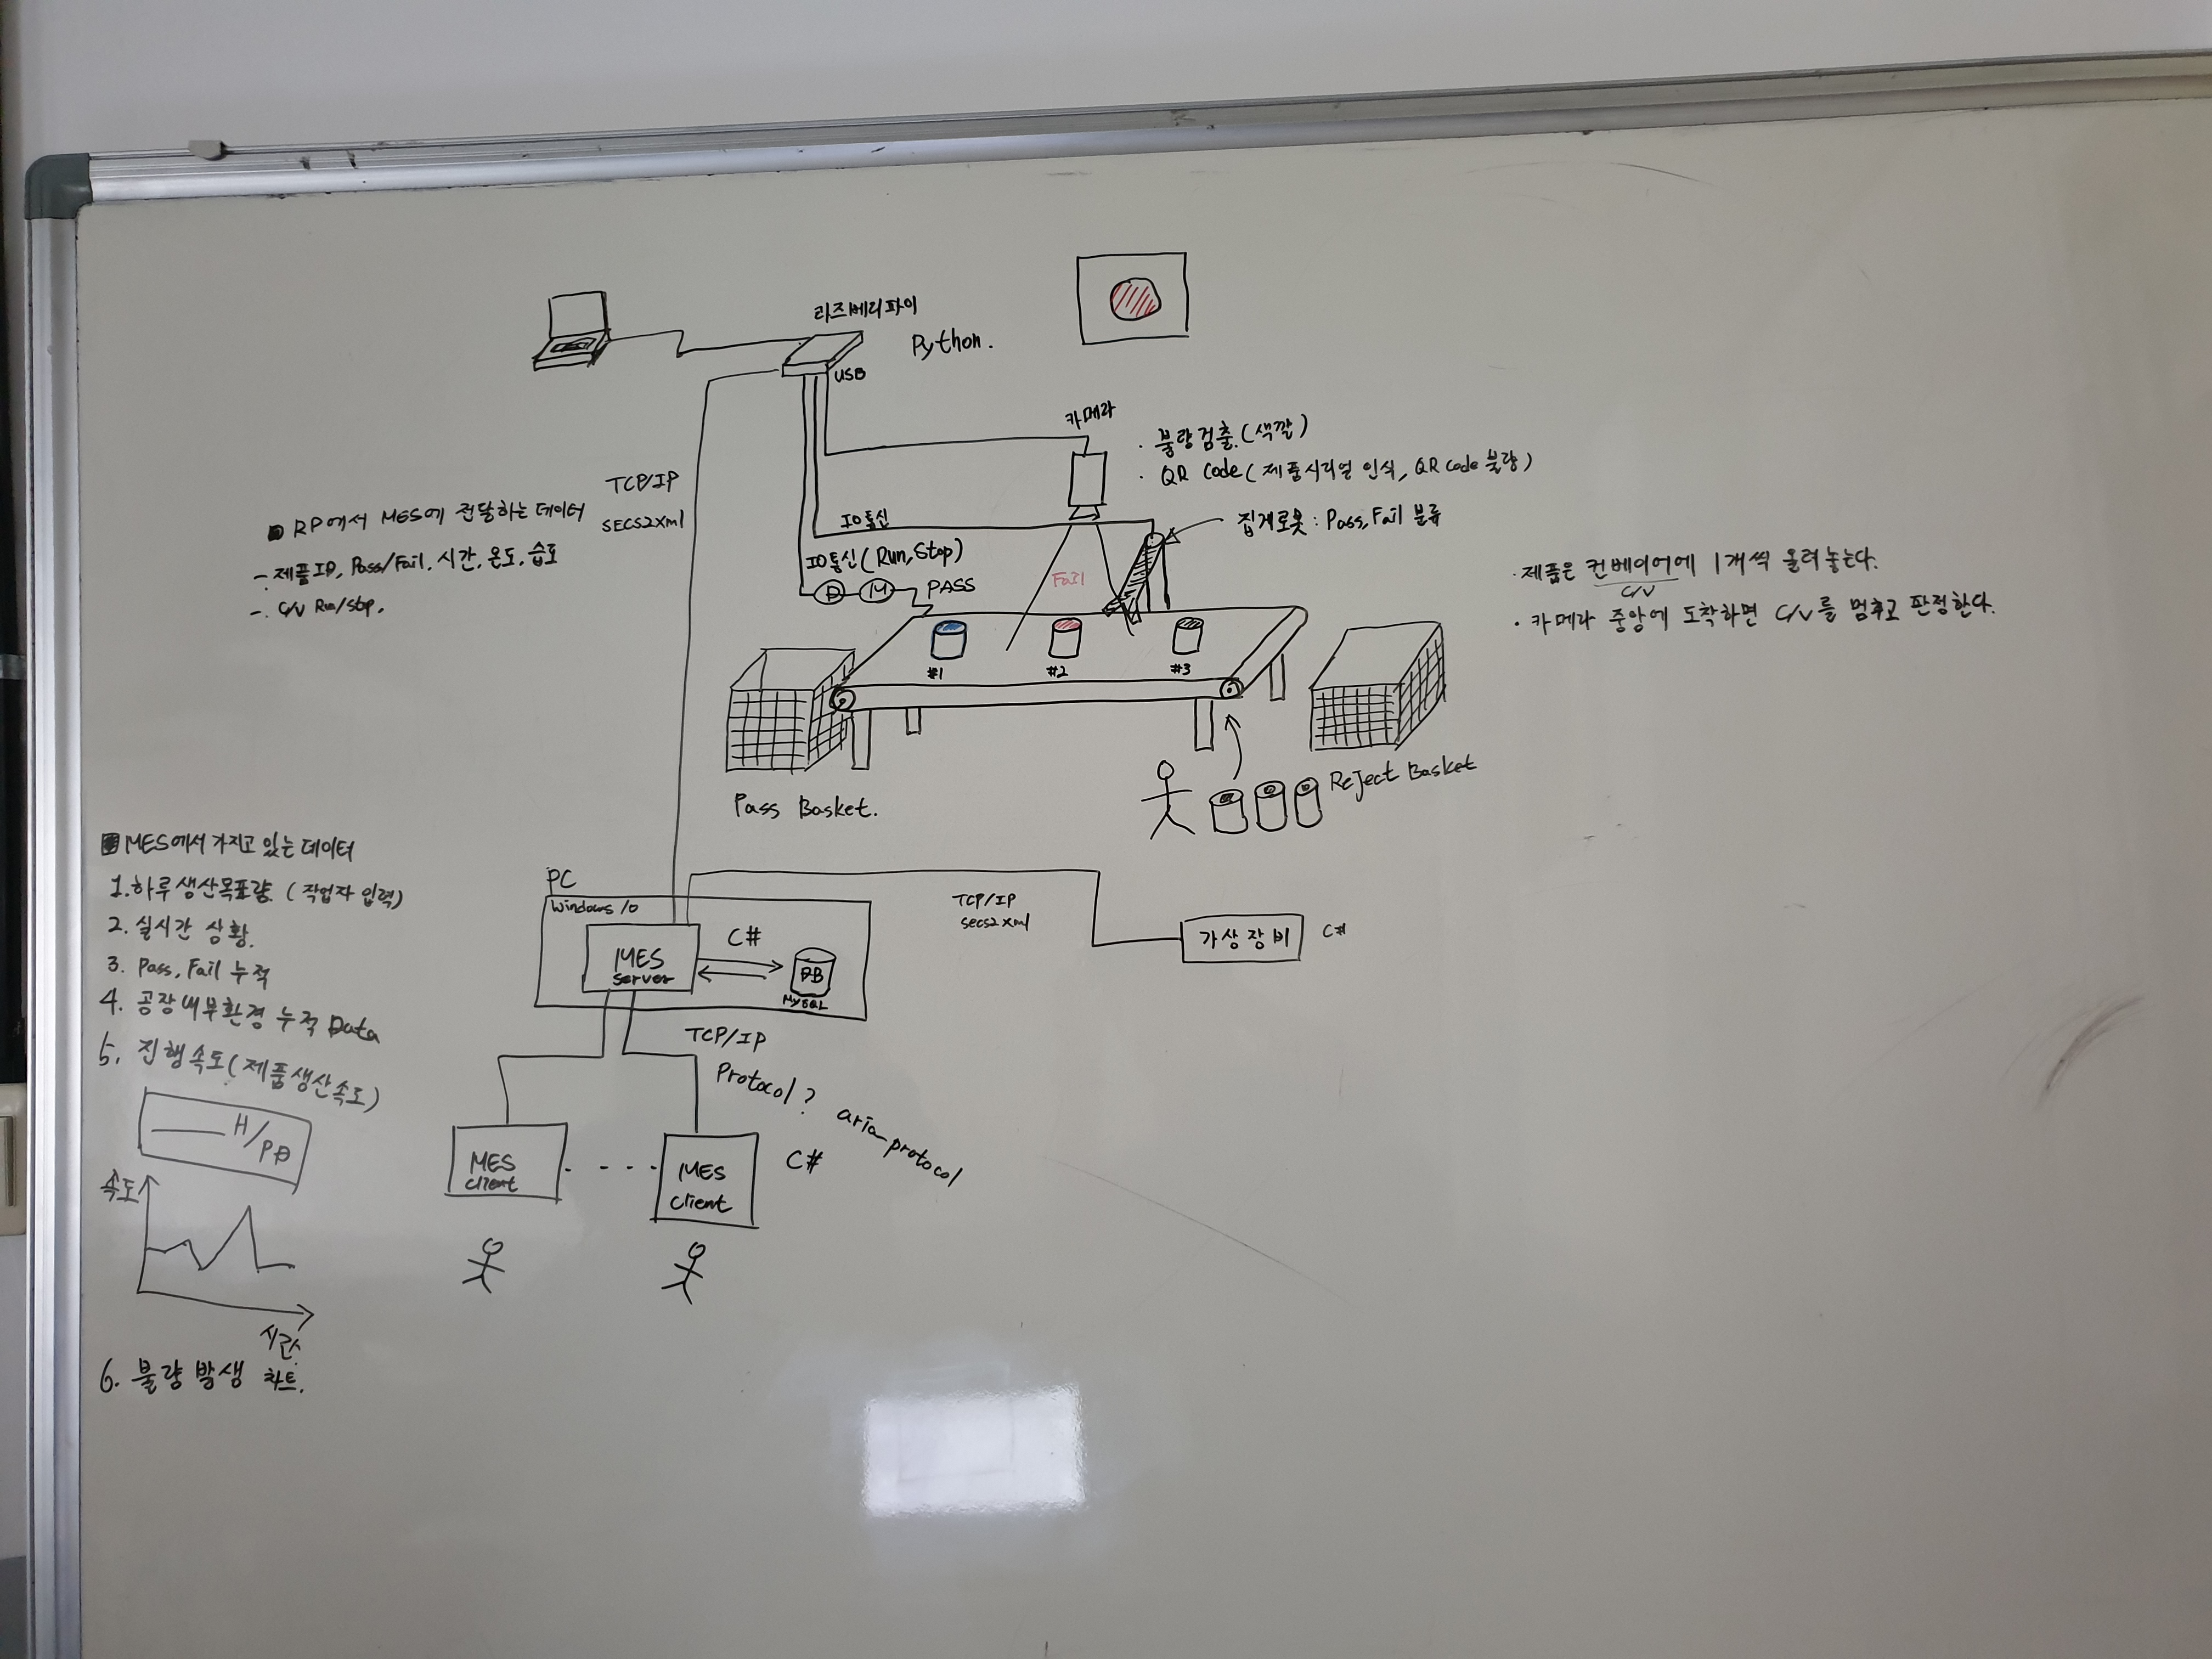 라즈베리파이
Python.
USB
카메라
· 불량검출.(색깔)
· QR code(제품시리얼 인식, QR code 불량)
TCP/IP
SECS2Xml
■ RP에서 MES에 전달하는 데이터
- 제품ID, Pass/Fail, 시간, 온도, 습도
- C/V Run/stop,
IO통신
집게로봇 : Pass, Fail 분류
IO통신(Run, Stop)
D
M
PASS
Fail
· 제품은 컨베이어에 1개씩 올려놓는다.
C/V
· 카메라 중앙에 도착하면 C/V를 멈추고 판정한다.
#1
#2
#3
Pass Basket.
Reject Basket
■ MES에서 가지고 있는 데이터
1. 하루생산목표량. (작업자 입력)
2. 실시간 상황.
3. Pass, Fail 누적
4. 공장내부환경 누적 Data
5. 진행속도(제품생산속도)
속도
시간
6. 불량발생 차트.
PC
Windows 10
MES
server
C#
DB
MySQL
TCP/IP
secs2xml
가상장비
C#
TCP/IP
Protocol? aria_protocol
MES
client
MES
client
C#